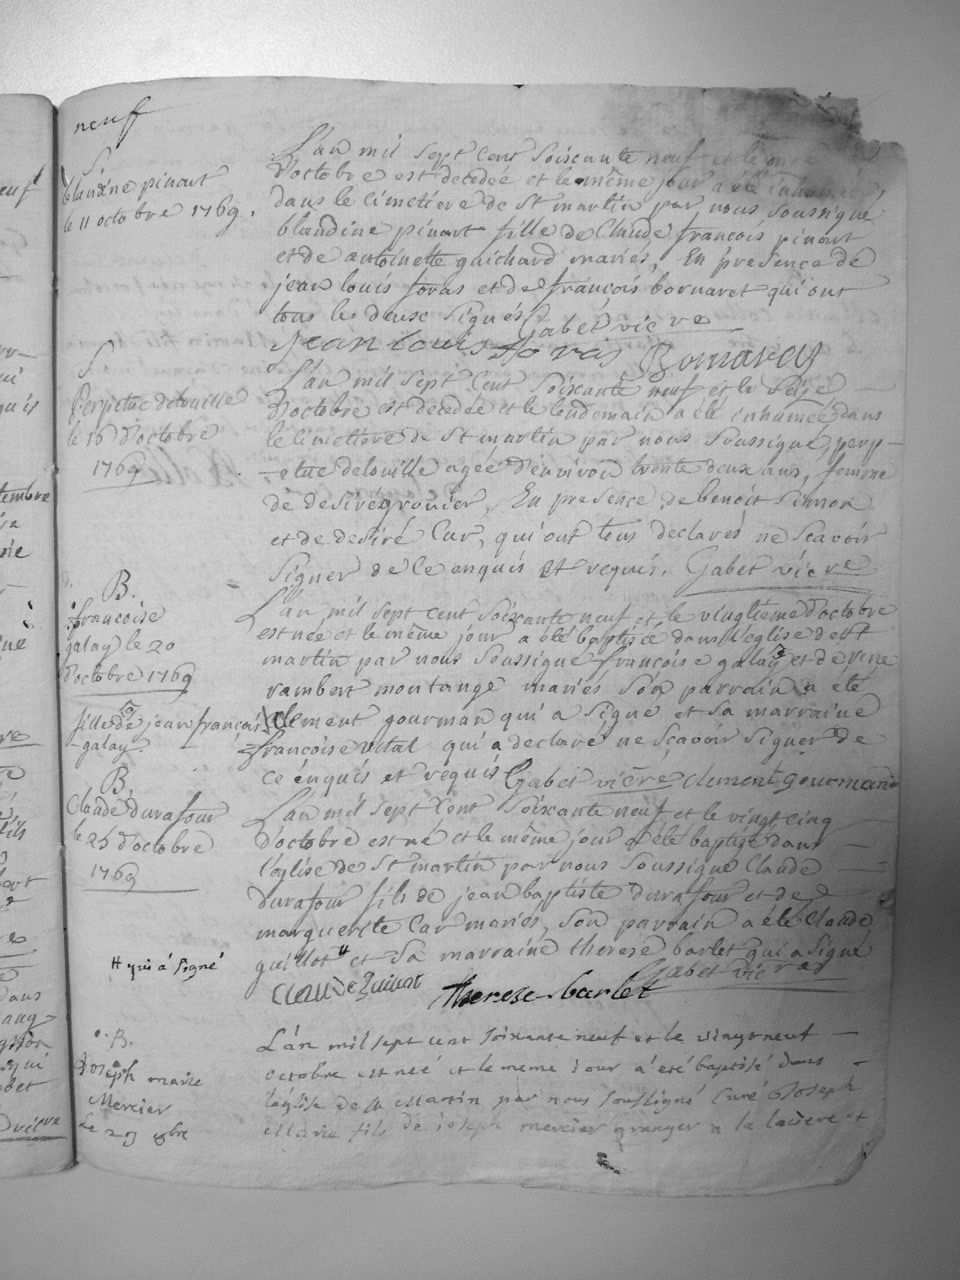 neuf
S.
blandine pinart
le 11 octobre 1769.
L'an mil sept cent soixante neuf et le onze
d'octobre est decedée et le même jour a été inhumée
dans le cimetiere de St martin par nous soussigné
blandine pinart fille de Claude françois pinart
et de antoinette guichard mariés, En presence de
jean louis foras et de françois bornaret qui ont
tous les deux signés Gabet vicre
jean louis foras Bornaret
S.
Perpetue delouille
le 16 d'octobre
1769
L'an mil sept cent soixante neuf et le seize
d'octobre est decedée et le lendemain a été inhumée dans
le cimetiere de St martin par nous soussigné, perp-
-etue delouille agée d'environ trente deux ans, femme
de desiré gronier, En presence de benoit simon
et de desiré Cur, qui ont tous declarés ne scavoir
signer de ce enquis et requis. Gabet vicre
B.
françoise
galay le 20
d'octobre 1769
fille de jean françois
galay
L'an mil sept cent soixante neuf et le vingtième d'octobre
est née et le même jour a été baptisée dans l'eglise de st
martin par nous soussigné françoise galay et de
rambert montange mariés son parrain a été
Clement gourman qui a signé et sa marraine
françoise vital qui a declaré ne scavoir signer de
ce enquis et requis Gabet vicre clement gourmand
B
Claude durafour
le 25 d'octobre
1769
L'an mil sept cent soixante neuf et le vingt cinq
d'octobre est né et le même jour a été baptisé dans
l'eglise de St martin par nous soussigné Claude
durafour fils de jean baptiste durafour et de
marguerite Car mariés, son parrain a été Claude
guillot # et sa marraine therese barlet qui a signé
# qui a signé
Gabet vicre
Therese barlet
B.
Joseph marie
Mercier
le 29 8bre
L'an mil sept cent soixante neuf et le vingt neuf
octobre est né et le meme jour a été baptisé dans
l'eglise de st Martin par nous soussigné Curé Joseph
Marie fils de joseph mercier granger a la et